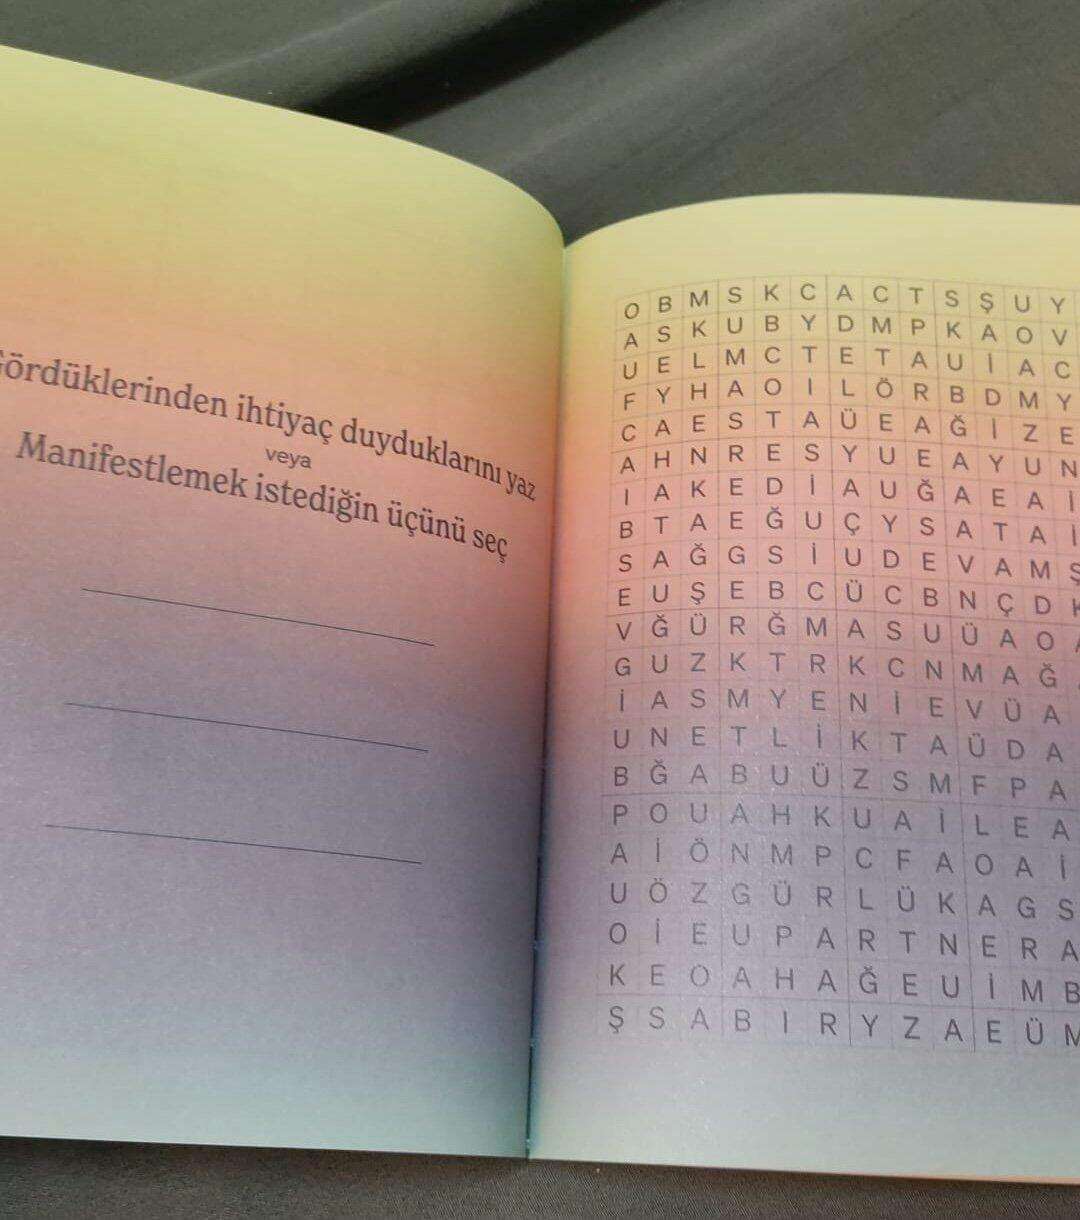 Gördüklerinden ihtiyaç duyduklarını yaz
veya
Manifestlemek istediğin üçünü seç
O B M S K C A C T S Ş U Y
A S K U B Y D M P K A O V
U E L M C T E T A U İ A C
F Y H A O I L Ö R B D M Y
C A E S T A Ü E A Ğ İ Z E
A H N R E S Y U E A Y U N
I A K E D İ A U Ğ A E A İ
B T A E Ğ U Ç Y S A T A İ
S A Ğ G S İ U D E V A M Ş
E U Ş E B C Ü C B N Ç D K
V Ğ Ü R Ğ M A S U Ü A O
G U Z K T R K C N M A Ğ
İ A S M Y E N İ E V Ü A
U N E T L İ K T A Ü D A
B Ğ A B U Ü Z S M F P A
P O U A H K U A İ L E A
A İ Ö N M P C F A O A İ
U Ö Z G Ü R L Ü K A G S
O İ E U P A R T N E R A
K E O A H A Ğ E U İ M B
Ş S A B I R Y Z A E Ü M